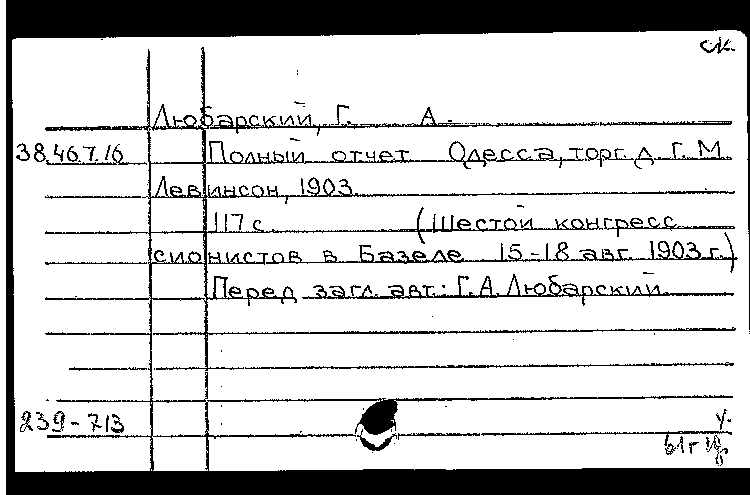 ск.
Любарский, Г. А.
38.46.7.16 Полный отчет Одесса, торг. д. Г. М.
Левинсон, 1903.
117 с. (Шестой конгресс
сионистов в Базеле 15-18 авг. 1903 г.)
Перед загл. авт.: Г.А. Любарский.
239-713 У.
61г